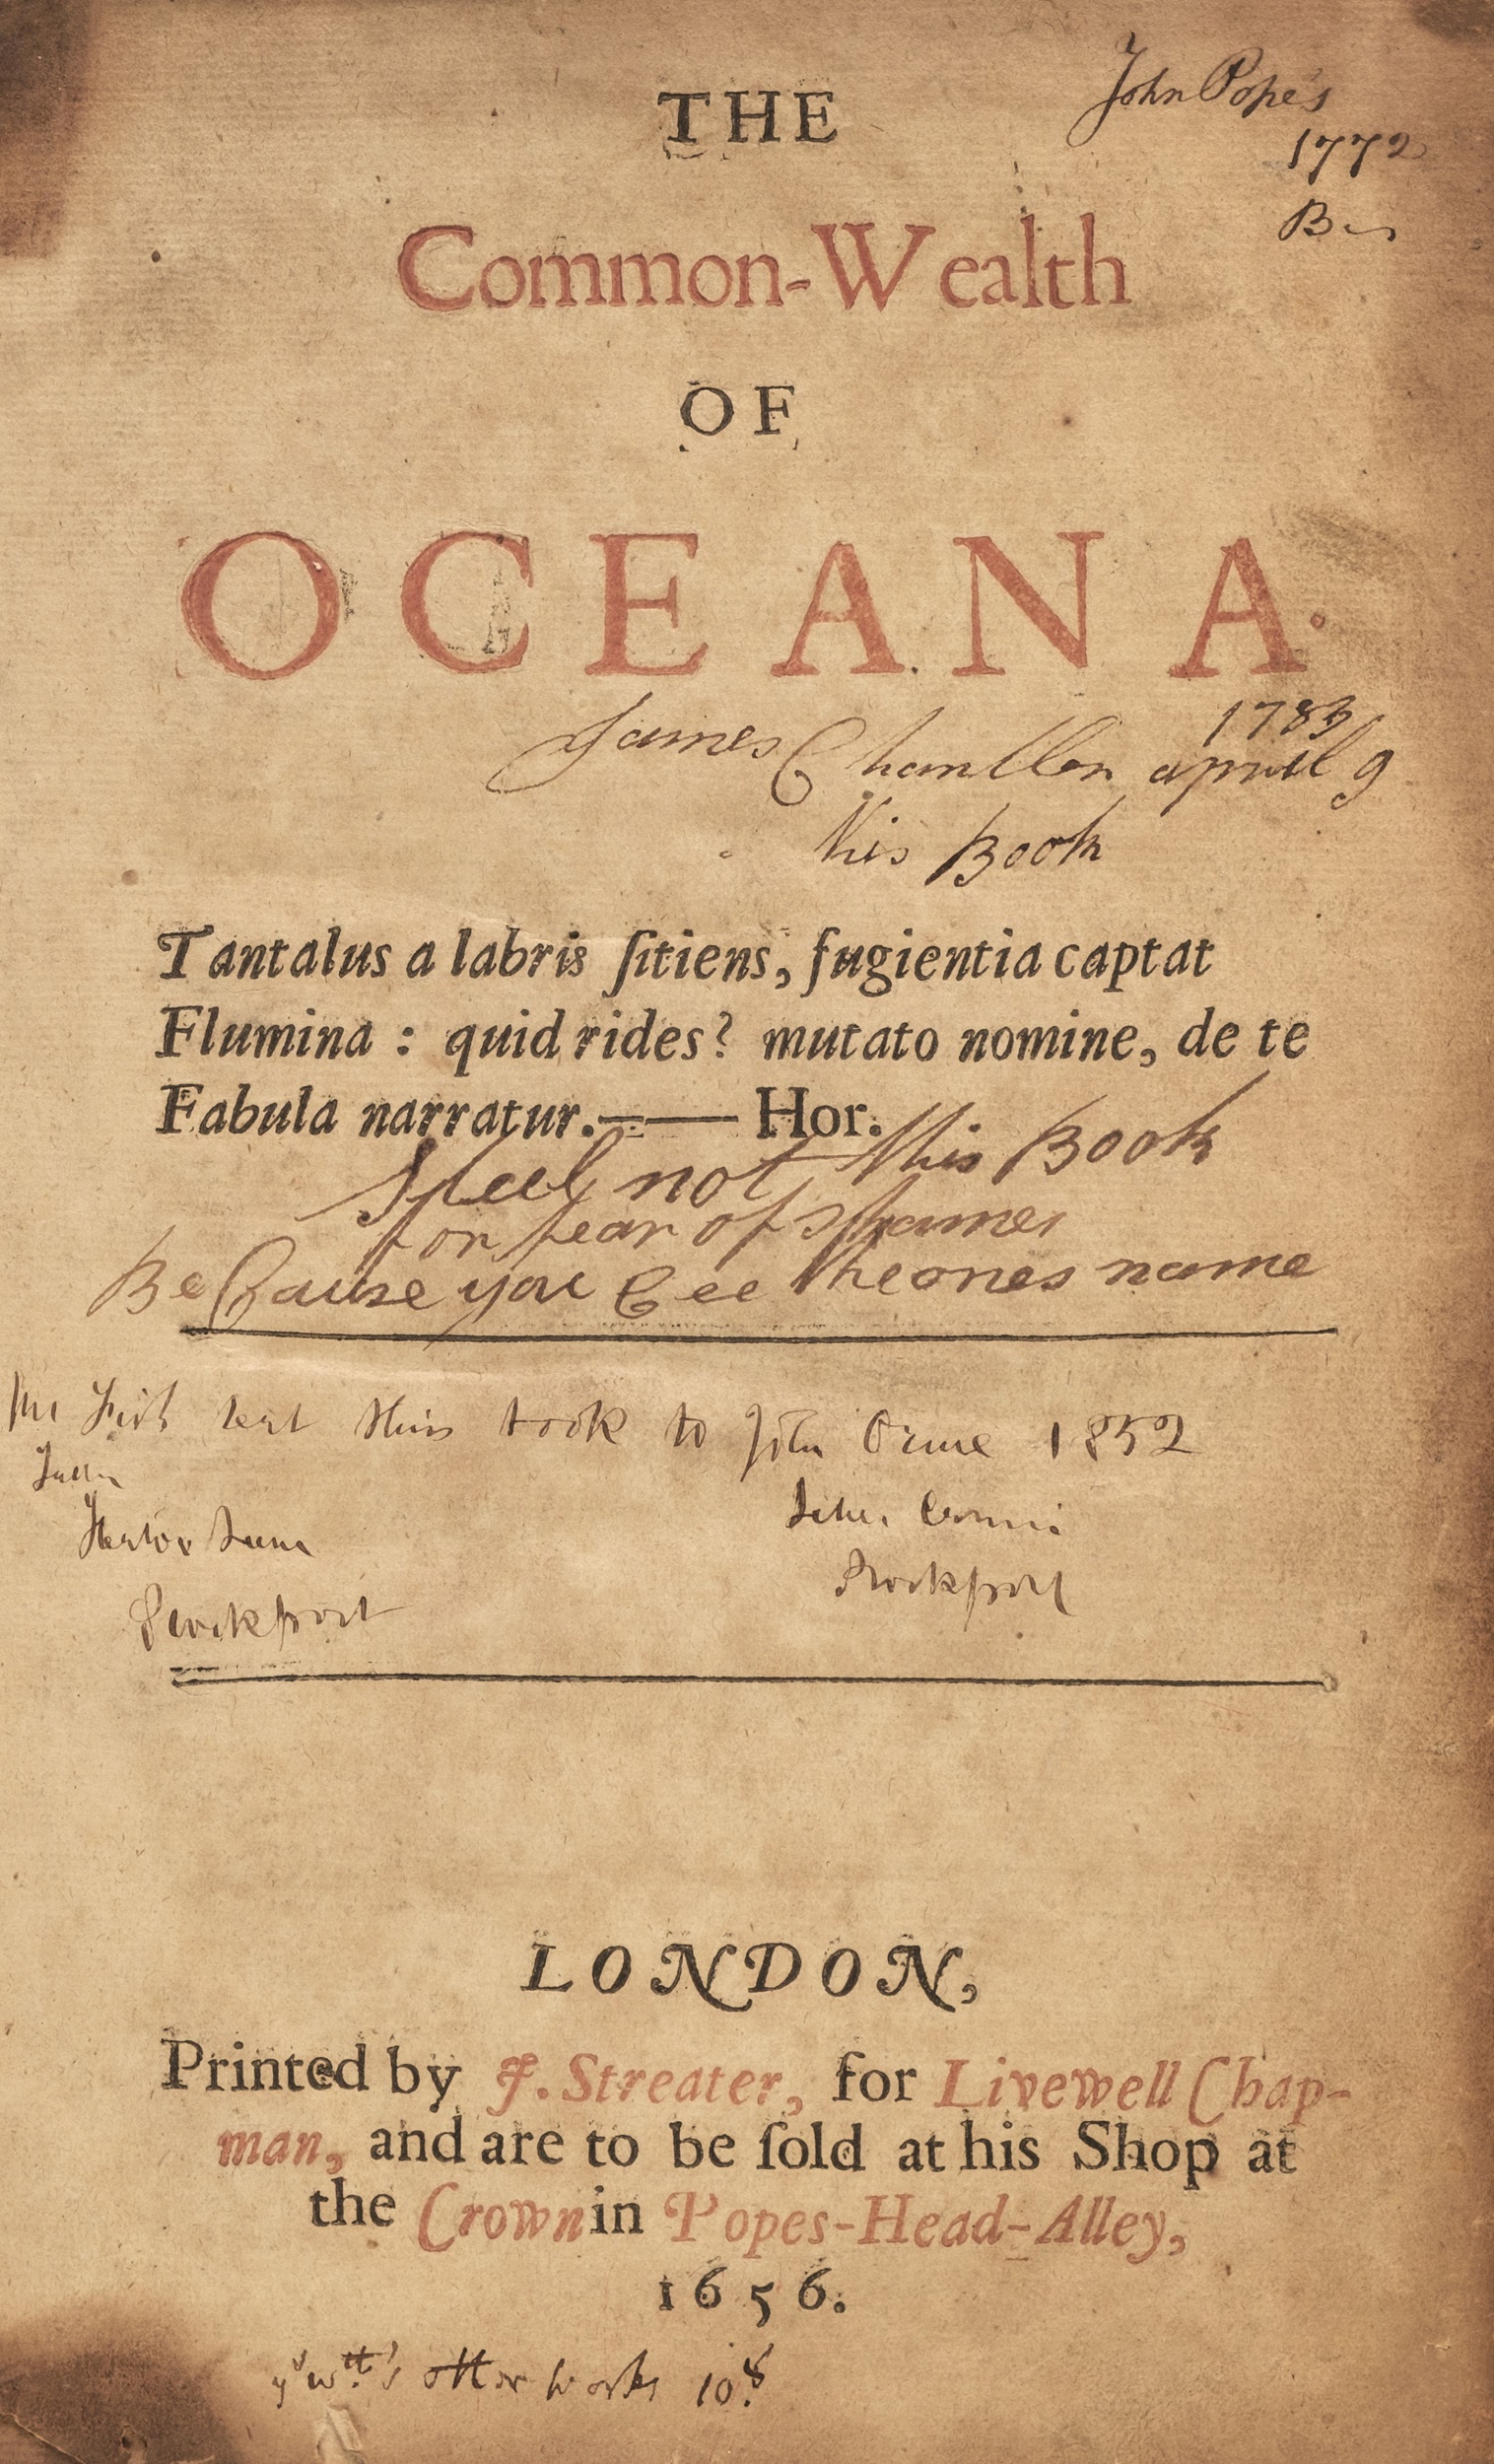 THE
John Pope's
1772
Common-Wealth
OF
OCEANA.
1783
James april 9
this Book
Tantalus a labris ſitiens, fugientia captat
Flumina : quid rides? mutato nomine, de te
Fabula narratur.—— Hor.
Steel not this Book
for fear of shame
BeCause you Cee the ones name
this to John Orme 1852
Stockport
Stockport
LONDON,
Printed by J. Streater, for Livewell Chap-
man, and are to be ſold at his Shop at
the Crown in Popes-Head-Alley,
1656.
works 10